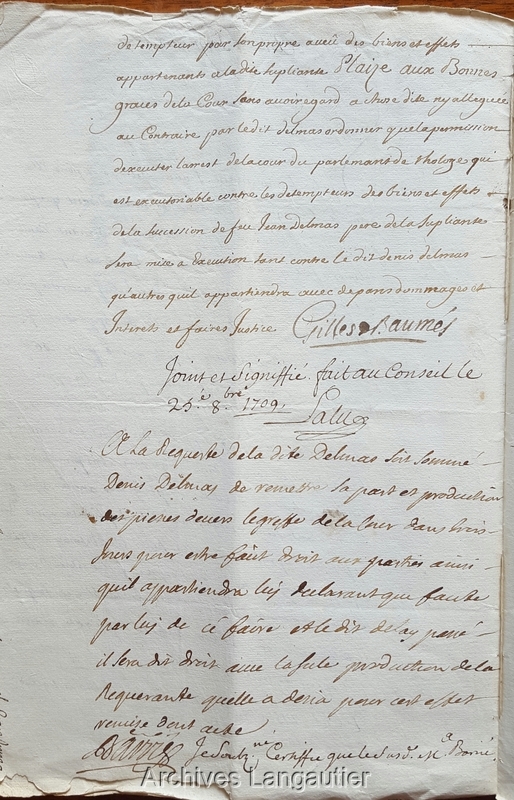 detempteur par son propre aveu des biens et effets
appartenants a la dite supliante Plaize aux Bonnes
graces de la Cour sans avoir egard a chose dite ny alleguee
au Contraire par le dit delmas ordonner que la permission
dexecuter larrest de la cour du parlemant de tholoze qui
est executoriable contre les detempteurs des biens et effets
de la sucession de feu Jean Delmas pere de la supliante
sera mise a Execution tant contre le dit denis delmas
qu'autres quil appartiendra avec depans dommages et
Interets et faires Justice Gilles Baumés
Joint et signiffié fait au Conseil le
25e 8bre 1709
A La Requeste de la dite Delmas soit sommé
Denis Delmas de remettre sa part et production
des pieses devers le greffe de la Cour dans trois
Jours pour estre faüt droit aux parties ainsi
quil appartiendra luy declarant que faute
par luy de ce faire et le dit delay passé
il sera dit droit aux la sule production de la
Requerante quelle a desia pour cest effet
remise dont acte
Je certiffie que le susd. Me
Archives Langautier